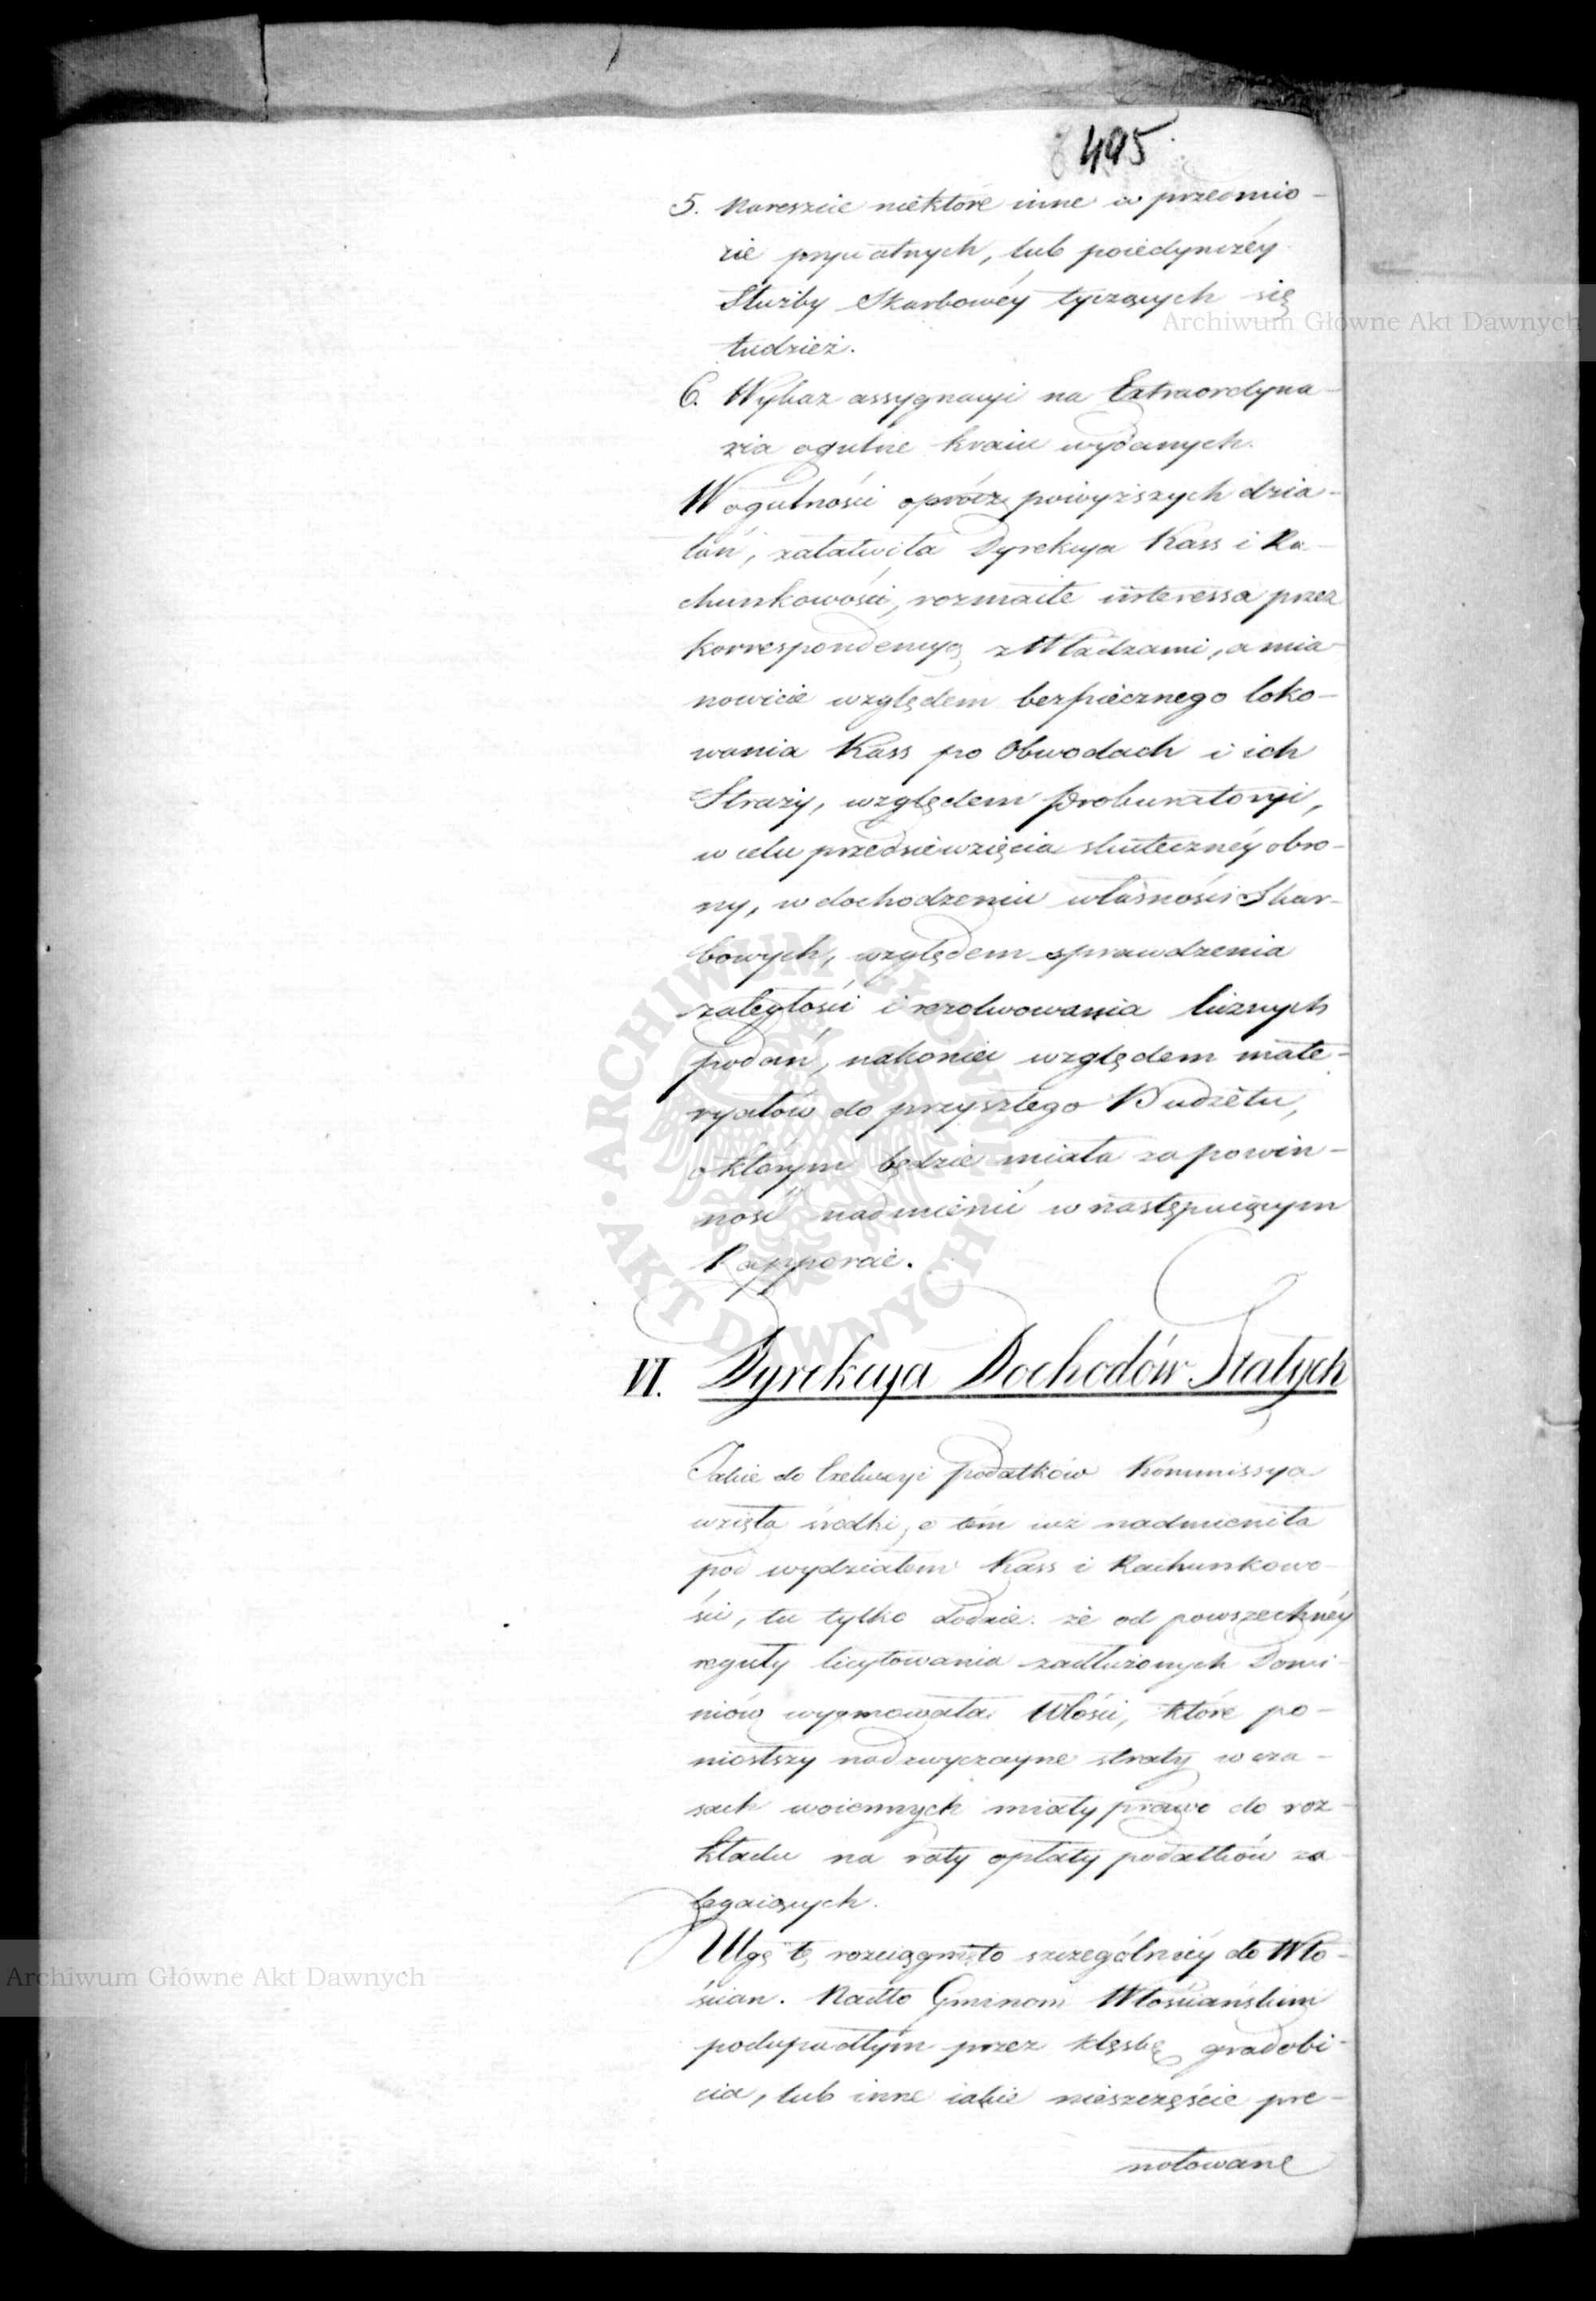 495.
5. Nareszcie niektóre inne w przedmio-
cie prywatnych, lub poiedynczéy
Służby Skarbowéy tyczących się
tudzież.
6. Wykaz assygnacyi na Extraordyna-
ria ogulne kraiu wydanych.
W ogulności oprócz powyższych dzia-
łań, załatwiła Dyrekcya Kass i Ra-
chunkowości, rozmaite interessa przez
korrespondencyą z Władzami, a mia-
nowicie względem bezpiecznego loko-
wania Kass po Obwodach i ich
Straży, względem Prokuratoryi,
w celu przedsiewzięcia skutecznéy obro-
ny, w dochodzeniu własności Skar-
bowych, względem sprawdzenia
zaległości i rezolwowania licznych
podań, nakoniec względem mate-
ryałów do przyszłego Budżetu,
o którym będzie miała za powin-
ność nadmienić w następuiącym
Rapporcie.
VI. Dyrekcya Dochodów Stałych
Jakie do Exekucyi podatków Kommissya
wzięła środki, o tém iuż nadmieniła
pod wydziałem Kass i Rachunkowo-
ści, tu tylko dodaie. że od powszechnéy
reguły licytowania zadłużonych Domi-
niów wyymowała Włości, które po-
niosłszy nadzwyczayne straty w cza-
sach woiennych miały prawo do roz-
kładu na raty opłaty podatków za-
legaiących.
Ulgę tę rozciągnięto szczególniéy do Wło-
ścian. Nadto Gminom Włościańskim
podupadłym przez klęskę gradobi-
cia, lub inne iakie nieszczęście pre-
notowane
Archiwum Główne Akt Dawnych
ARCHIWUM GŁÓWNE · AKT DAWNYCH ·
Archiwum Główne Akt Dawnych